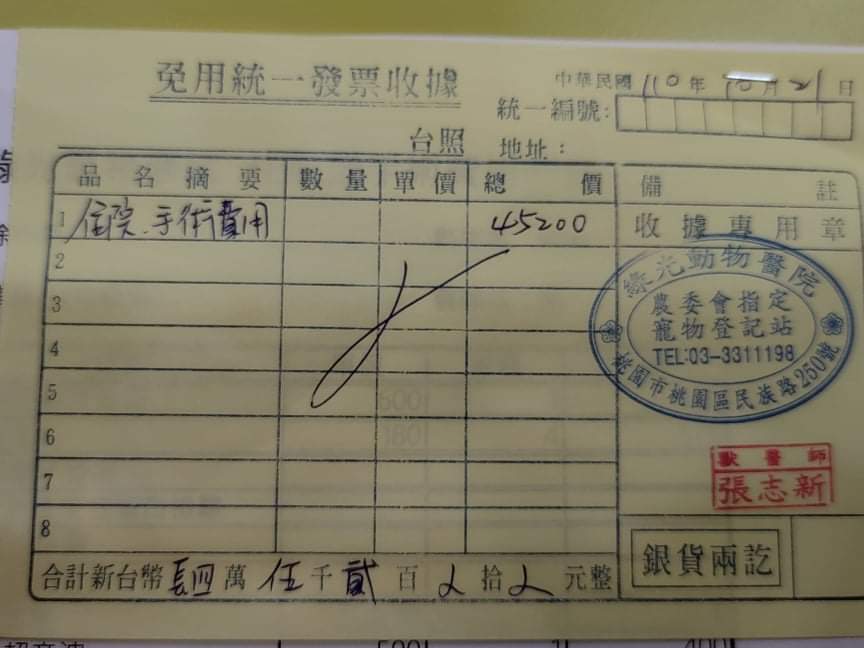 免用統一發票收據
中華民國 110 年 10 月 21 日
統一編號：
台照 地址：
品名摘要 數量 單價 總價 備註
1 住院、手術費用 45200
收據專用章
2
3
4
5
6
7
8
綠光動物醫院
農委會指定
寵物登記站
TEL:03-3311198
桃園市桃園區民族路250號
獸醫師
張志新
合計新台幣 肆 萬 伍 千 貳 百 拾 元整
銀貨兩訖
600
180
4